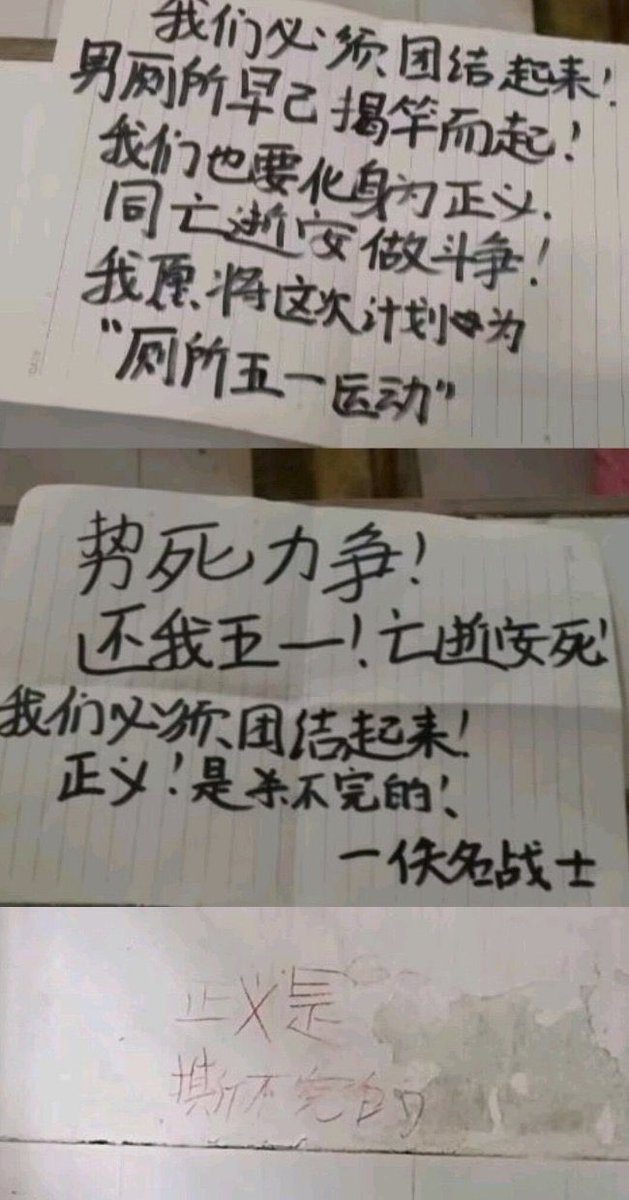 我们必须团结起来！
男厕所早己揭竿而起！
我们也要化身为正义.
同亡逝安做斗争！
我愿将这次计划为
“厕所五一运动”
势死力争！
还我五一！亡逝安死！
我们必须团结起来！
正义！是杀不完的！
一佚名战士
正义是
撕不完的